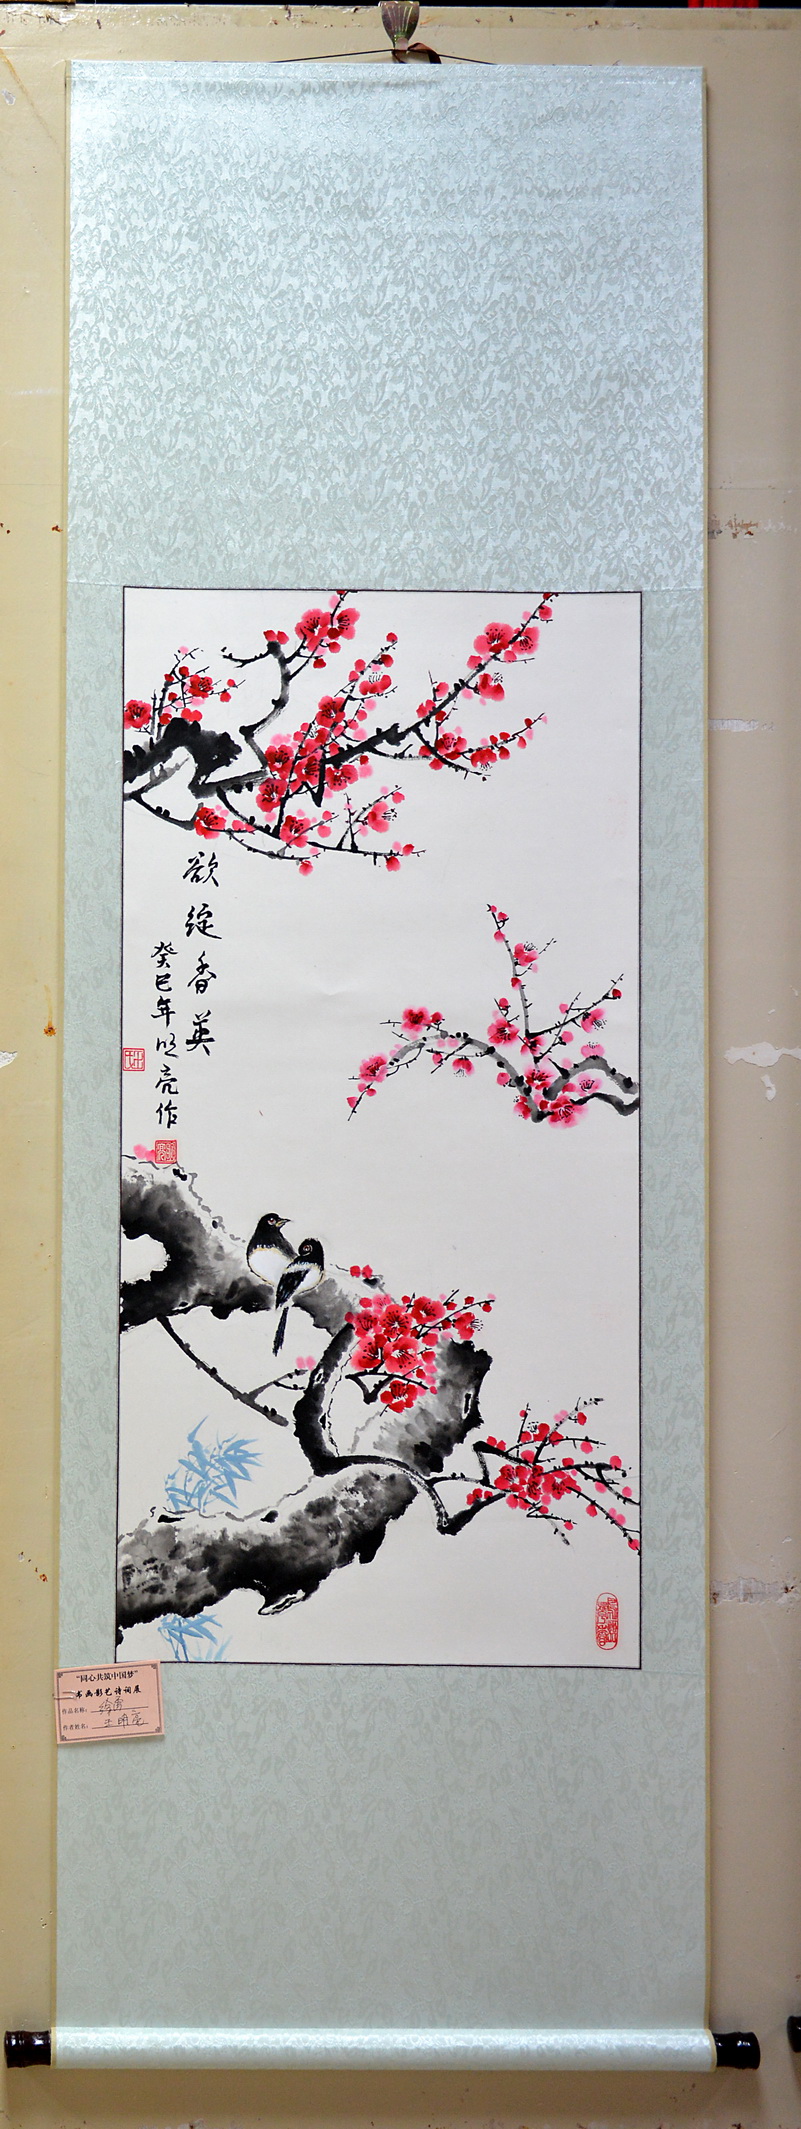 欲绽香英
癸巳年明亮作
“同心共筑中国梦”
书画影艺诗词展
作品名称：
作者姓名：王明亮